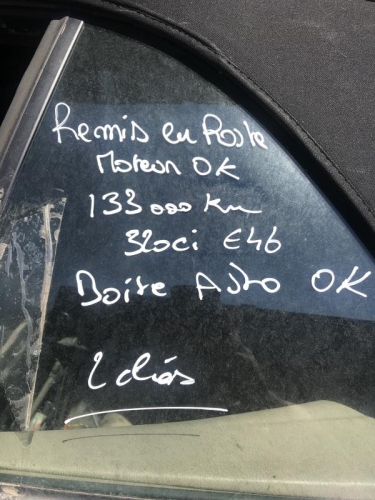 Remis en Route
Moteur OK
133000 km
320ci E46
Boite Auto OK
2 clés